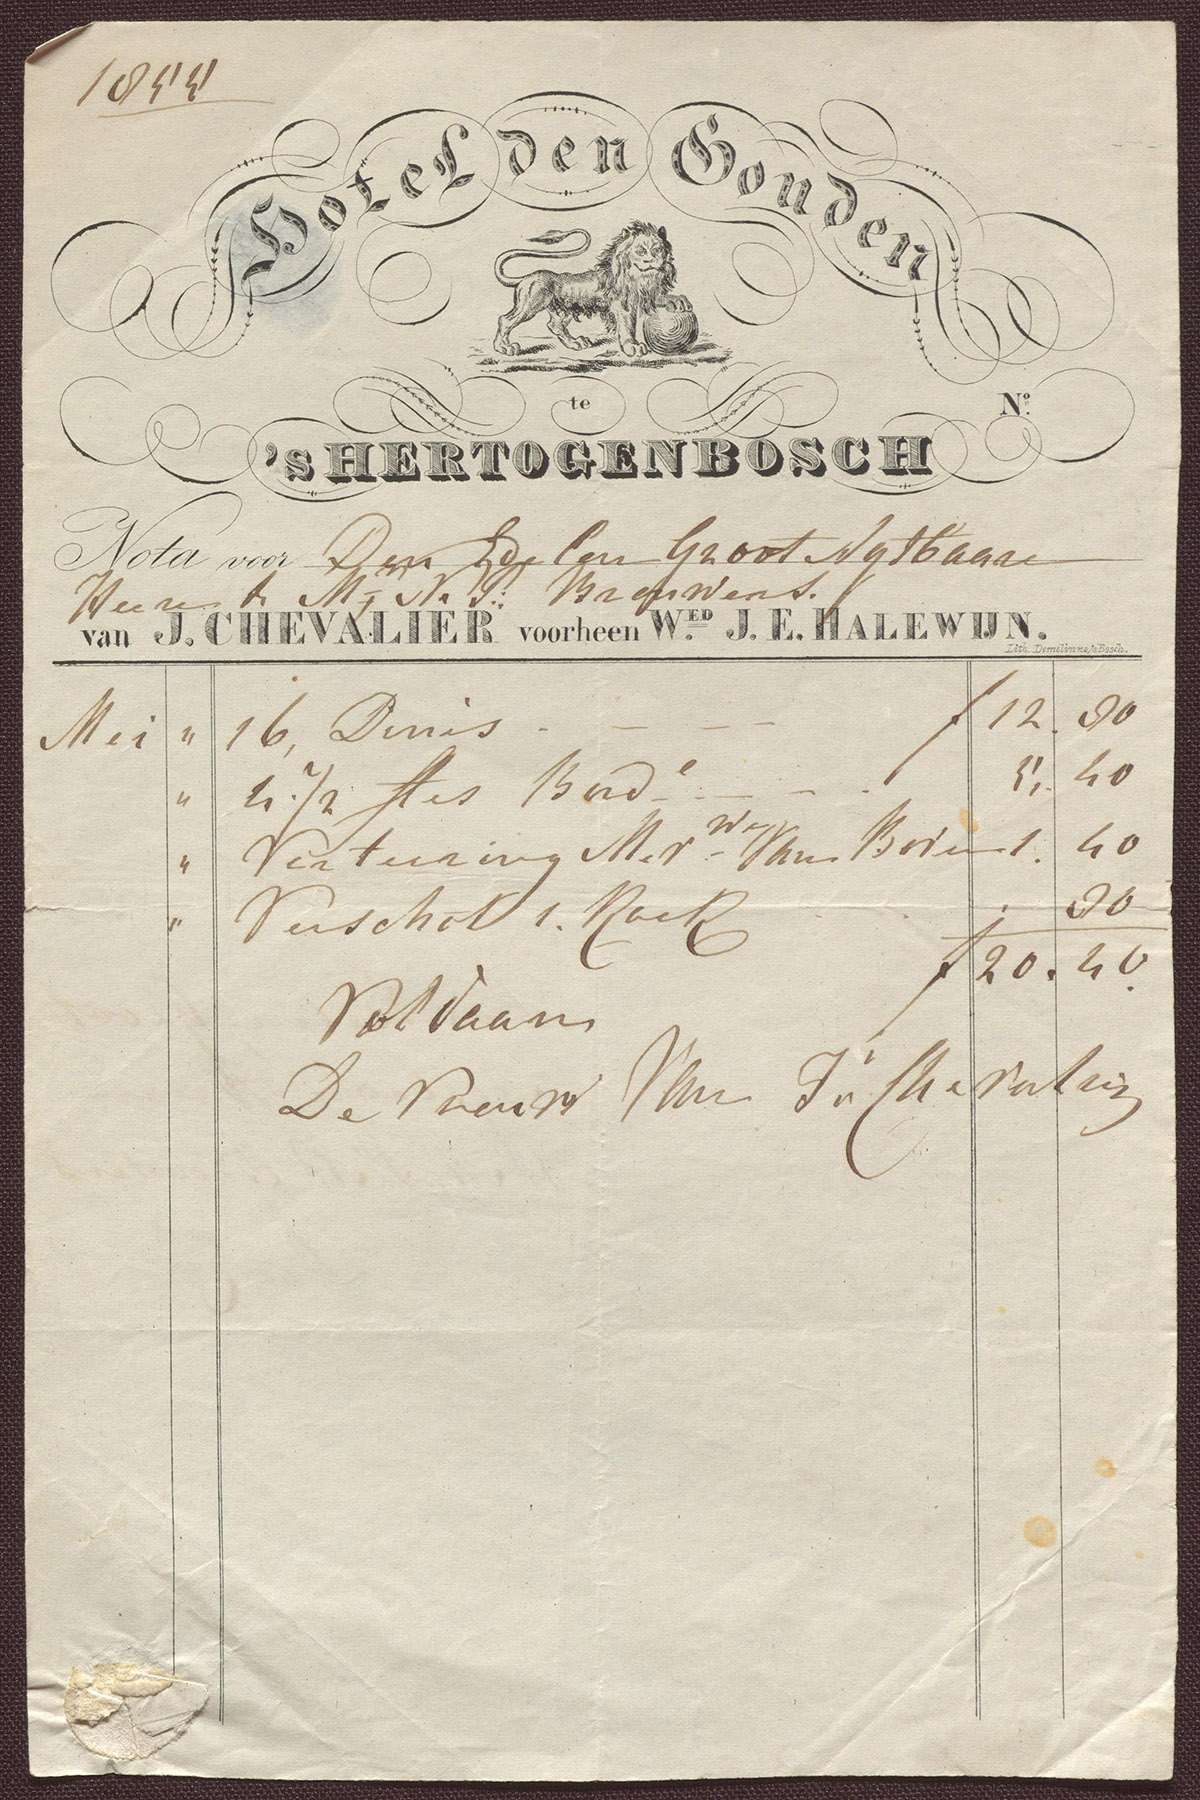 1844
Hotel den Gouden
te
No.
'sHERTOGENBOSCH
Nota voor Den Edelen Groot Agtbaare
Heere Mr. Brouwers.
van J. CHEVALIER voorheen WED. J. E. HALEWIJN.
Lith. Demelinne, 's Bosch.
Mei " 16, Dinés - - - - f 12. 80
" 4 1/2 fles Bord - - - - 5. 40
" Verteering Mevr We Van 1. 40
" Verschot 1. " 80
f 20. 40
Voldaan
De Vrouw Van J. Chevalier